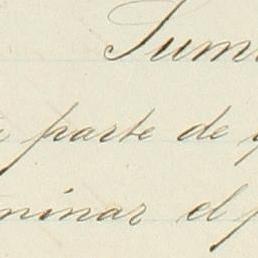 Sum
parte de
minar el